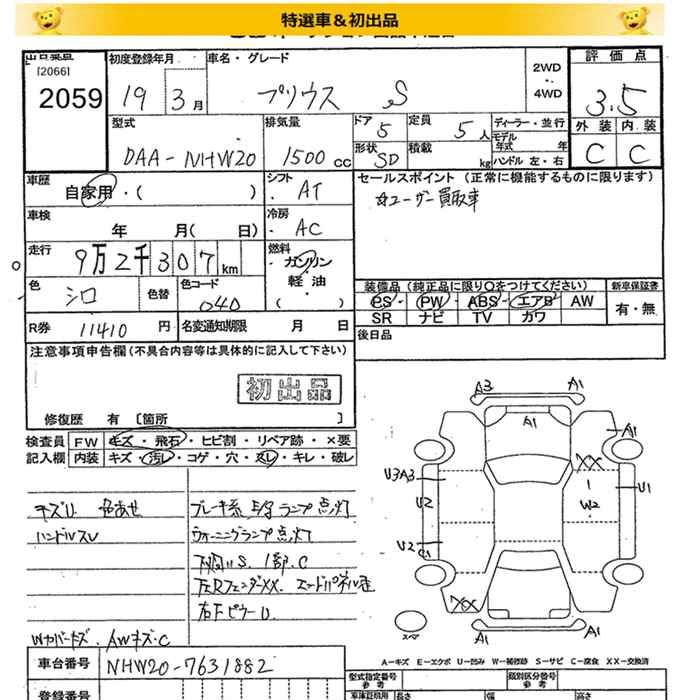 特選車＆初出品
[2066]
2059
初度登録年月
19 3月
車名・グレード
プリウス S
2WD
・
4WD
評価点
3.5
外装 内装
C C
型式
DAA-NHW20
排気量
1500 cc
ドア 5
形状 SD
定員 5人
積載 kg
ディーラー・並行
モデル年式 年
ハンドル 左・右
車歴
自家用・( )
シフト
AT
車検
年 月( 日)
冷房
AC
走行
9万2千307km
燃料
ガソリン
・
軽油
( )
色
シロ
色替
色コード
040
R券 11410円
名変通知期限 月 日
セールスポイント (正常に機能するものに限ります)
☆ユーザー買取車
装備品 (純正品に限り○をつけてください)
PS PW ABS エアB AW
SR ナビ TV カワ
新車保証書
有・無
後日品
注意事項申告欄(不具合内容等は具体的に記入して下さい)
初出品
修復歴 有 [箇所 ]
検査員
記入欄
FW キズ・飛石・ヒビ割・リペア跡・×要
内装 キズ・汚レ・コゲ・穴・スレ・キレ・破レ
キズU 色あせ
ハンドルスレ
ブレーキ系 ランプ点灯
ウォーニングランプ点灯
下廻りS. 1部.C
左RフェンダーXX. エンドパネル
右Fピラー U
Wカバーキズ. AWキズ・C
車台番号 NHW20-7631882
登録番号
A3 A1
A1
A1
XX
U3A3
U2
W2
U1
U2
C1
XX
スペア
A1 A1
A－キズ E－エクボ U－凹み W－補修跡 S－サビ C－腐食 XX－交換済
型式指定番号
参考
類別区分番号
参考
車庫証明用
長さ
幅
高さ